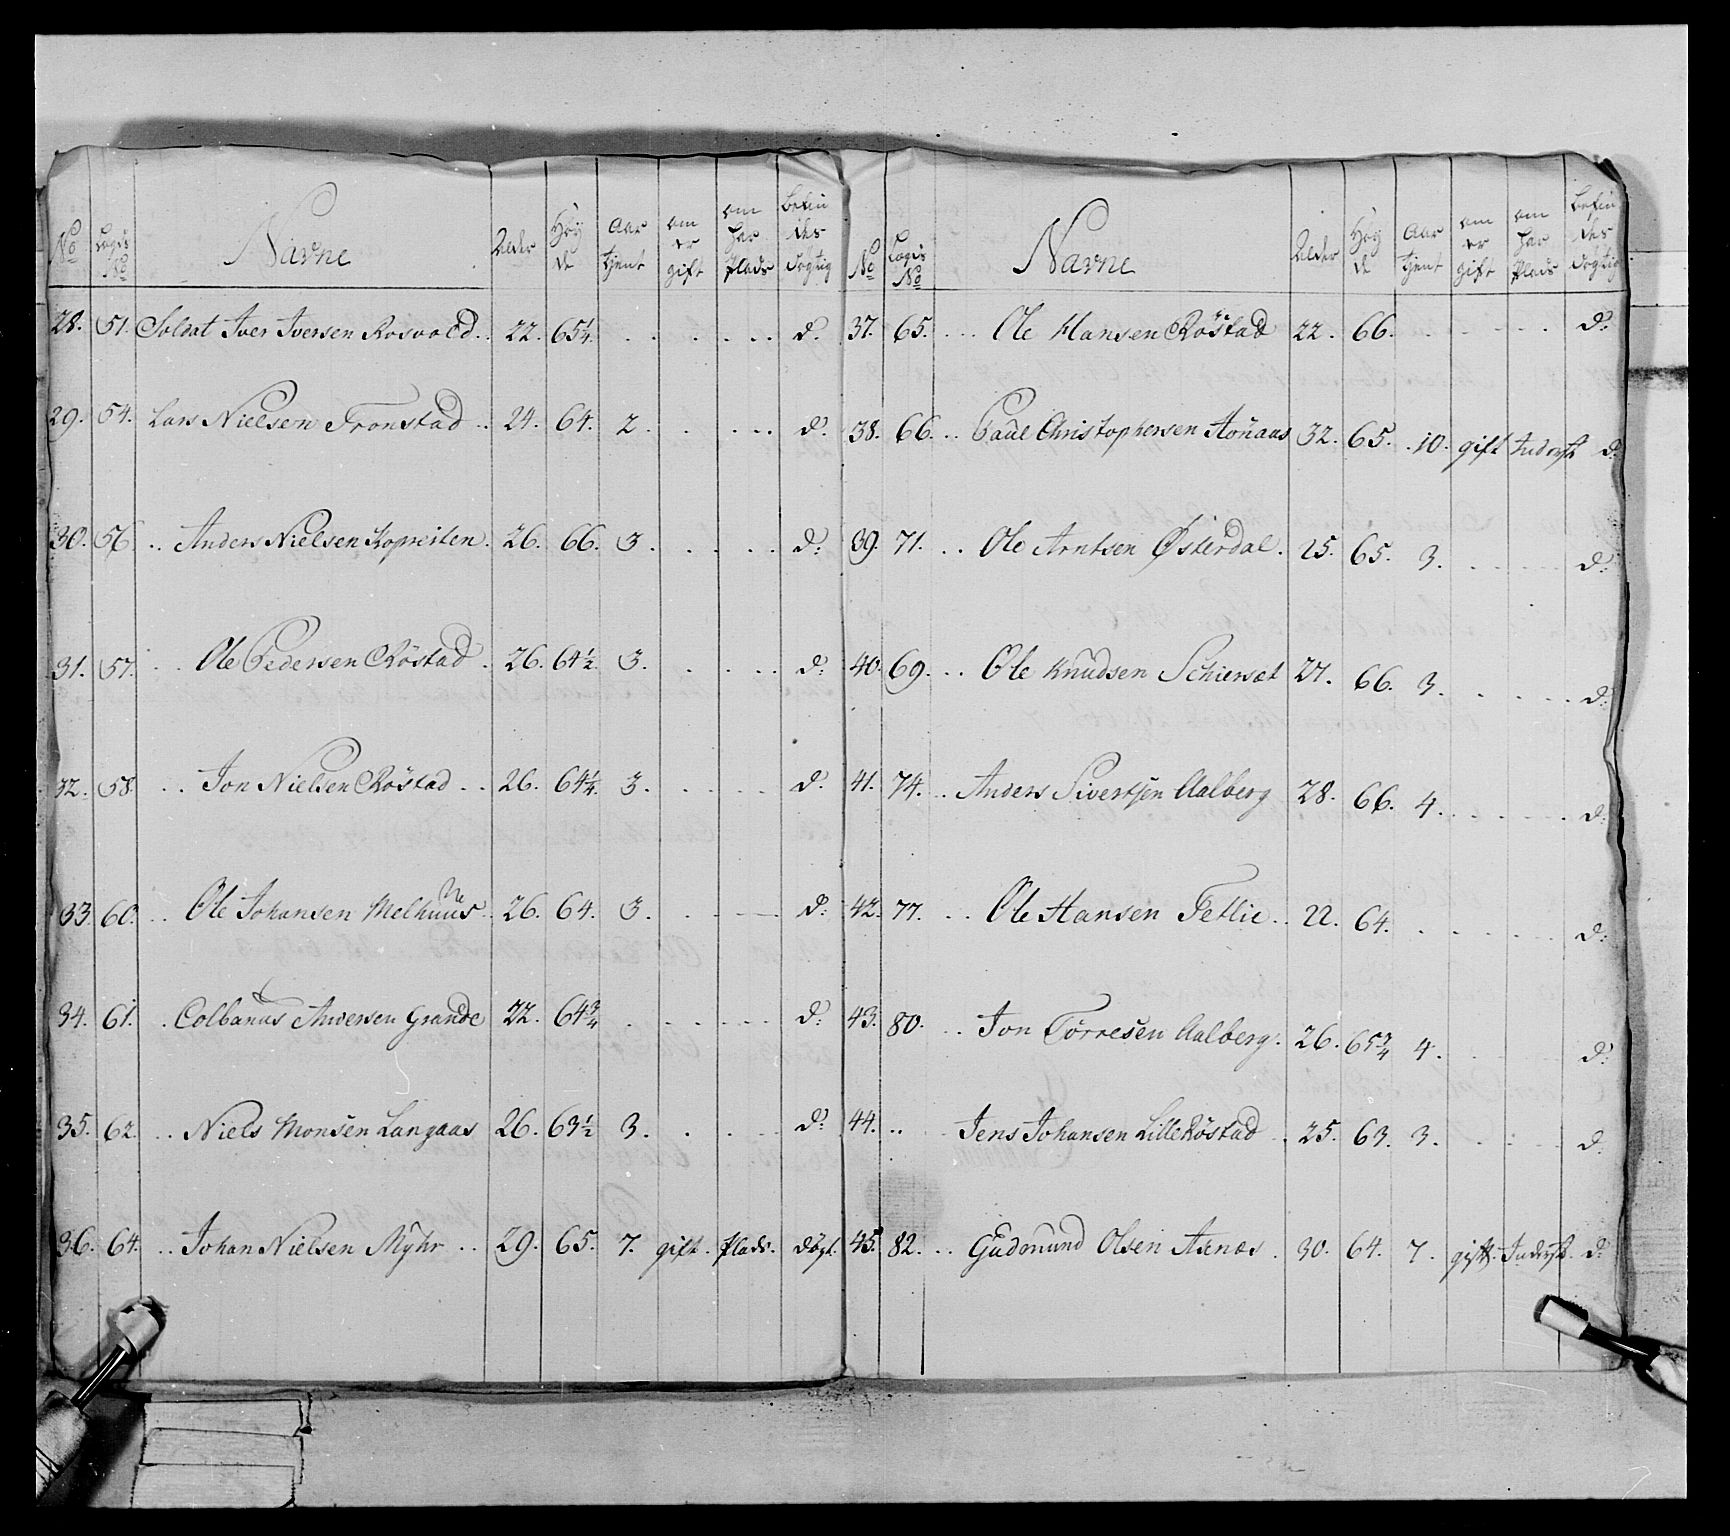 No Logis No Navne Alder Höy de Aar tjent om er gift om har Plads befin des dygtig
28. 51. Soldat Iver Iversen Rosvold .. 22. 65¼. . . . . . . d:
29. 54. Lars Nielsen Tronstad .. 24. 64. 2. . . . . d:
30. 56 .. Anders Nielsen Kopreiten. 26. 66. 3. . . . . d:
31. 57. .. Ole Pedersen Röstad . 26. 64½ 3. . . . . d:
32. 58. .. Jon Nielsen Röstad .. 26. 64¼. 3. . . . . d:
33. 60. .. Ole Johansen Melhuus .. 26. 64. 3. . . . d:
34. 61. . Colbanus Andersen Grande 22. 64¾ . . . . . d:
35. 62. .. Niels Monsen Langaas 26. 63½ 3. . . . d:
36. 64. .. Johan Nielsen Myhr .. 29. 65. 7. gift. Plads. dögt.
No Logis No Navne Alder Höy de Aar tjent om er gift om har Plads befin des dygtig
37. 65. ... Ole Hansen Röstad 22. 66. . . . . . d:
38. 66. .. Paul Christophersen Aönaas 32. 65. .10. gift Inderst d:
39. 71. .. Ole Arntsen Østerdal. 25. 65. 3. . . . . d:
40. 69. .. Ole Knudsen Schiersæt 27. 66. 3. . . . . d:
41. 74. .. Anders Sivertsen Aalberg 28. 66. 4. . . . . d:
42. 77. .. Ole Hansen Fettlie .. 22. 64. . . . . . d:
43. 80. .. Jon Torresen Aalberg. 26. 65¾ 4. . . d:
44. .. Jens Johansen LilleRöstad .. 25. 63. 3. . . . d:
45. 82. .. Gudmund Olsen Aunæs . 30. 64. 7. gift. Inderst. d: